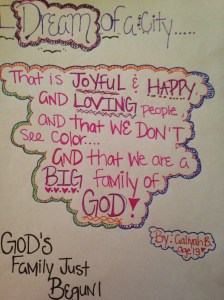 I Dream of a City.....
That is JOYFUL & HAPPY
AND LOVING people,
AND that WE DON'T
See COLOR....
AND that WE ARE A
BIG Family OF
GOD!
By: Caliyah B.
Age 13
GOD'S
Family Just
BEGUN!